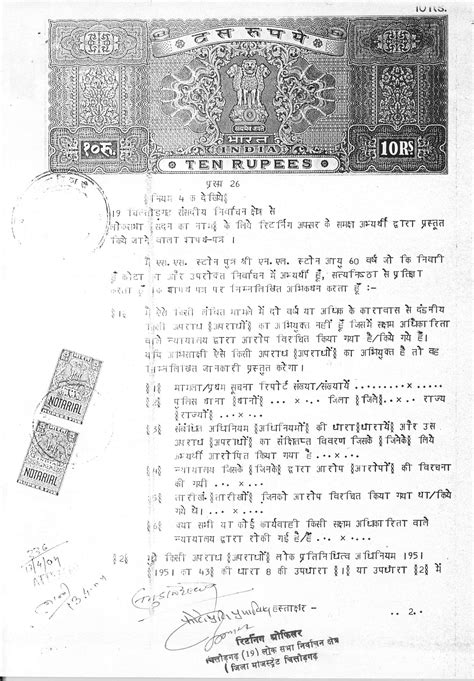 10 RS.
दस रुपये
सत्यमेव जयते
भारत
INDIA
१०रु.
TEN RUPEES
10RS
प्रसा 26
§नियम 4 क देखिये§
19 चित्तौड़गढ़ संसदीय निर्वाचन क्षेत्र से
लोकसभा §सदन का नाम§ के लिये रिटर्निंग अफसर के समक्ष अभ्यर्थी द्वारा प्रस्तुत
किये जाने वाला शपथ-पत्र ।
मैं एस. एस. स्टोन पुत्र श्री एन. एल. स्टोन आयु 60 वर्ष जो कि निवासी
कोटा का और उपरोक्त निर्वाचन में अभ्यर्थी हूँ, सत्यनिष्ठा से प्रतिज्ञा
करता हूँ कि शपथ पत्र पर निम्नलिखित अभिकथन करता हूँ :-
§1§ मैं ऐसे किसी लंबित मामले में दो वर्ष या अधिक के कारावास से दंडनीय
किसी अपराध §अपराधों§ का अभियुक्त नहीं हूँ जिसमें सक्षम अधिकारिता
वाले न्यायालय द्वारा आरोप विरचित किया गया है/किये गये हैं।
यदि अभिसाक्षी ऐसे किसी अपराध §अपराधों§ का अभियुक्त है तो वह
निम्नलिखित जानकारी प्रस्तुत करेगा ।
§1§ मामला/प्रथम सूचना रिपोर्ट संख्या/संख्यायें .....×.....
§2§ पुलिस थाना §थानों§ ...×...जिला §जिले§..×.. राज्य
§राज्यों§ ...×...
§3§ संबंधित अधिनियम §अधिनियमों§ की धारा §धारायें§ और उस
अपराध §अपराधों§ का संक्षिप्त विवरण जिसके §जिनके§ लिये
अभ्यर्थी आरोपित किया गया है .....×.....
§4§ न्यायालय जिसके §जिनके§ द्वारा आरोप §आरोपों§ की विरचना
की गयी ...×...
§5§ तारीख §तारीखों§ जिनको आरोप विरचित किया गया था/किये
गये थे। ...×...
§6§ क्या सभी या कोई कार्यवाही किसी सक्षम अधिकारिता वाले
न्यायालय द्वारा रोकी गई है/हैं ...×...
§2§ किसी अपराध §अपराधों§ लोक प्रतिनिधित्व अधिनियम 1951
§1951 का 43§ की धारा 8 की उपधारा §1§ या उपधारा §2§ में
NOTARIAL
NOTARIAL
13.4.04
हस्ताक्षर -
.. 2..
रिटर्निंग ऑफिसर
चित्तौड़गढ़ (19) लोक सभा निर्वाचन क्षेत्र
( जिला मजिस्ट्रेट चित्तौड़गढ़